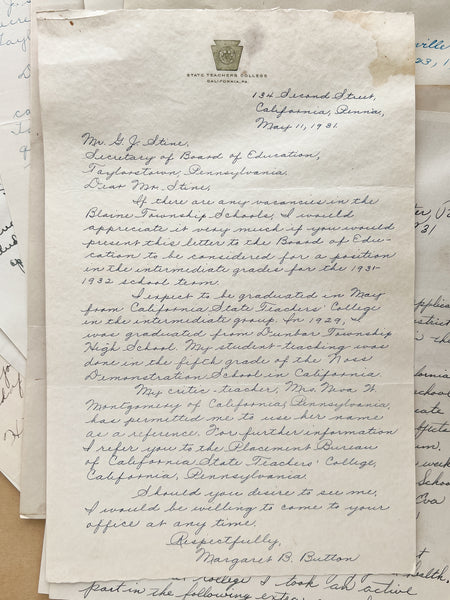 STATE TEACHERS COLLEGE
CALIFORNIA, PA.
134 Second Street,
California, Penna.,
May 11, 1931.
Mr. G. J. Stine,
Secretary of Board of Education,
Taylorstown, Pennsylvania.
Dear Mr. Stine,
If there are any vacancies in the
Blaine Township Schools, I would
appreciate it very much if you would
present this letter to the Board of Edu-
cation to be considered for a position
in the intermediate grades for the 1931-
1932 school term.
I expect to be graduated in May
from California State Teachers' College
in the intermediate group. In 1929, I
was graduated from Dunbar Township
High School. My student-teaching was
done in the fifth grade of the Noss
Demonstration School in California.
My critic-teacher, Mrs. Niva H.
Montgomery of California, Pennsylvania,
has permitted me to use her name
as a reference. For further information
I refer you to the Placement Bureau
of California State Teachers' College,
California, Pennsylvania.
Should you desire to see me,
I would be willing to come to your
office at any time.
Respectfully,
Margaret B. Button
college I took an active
part in the following extra